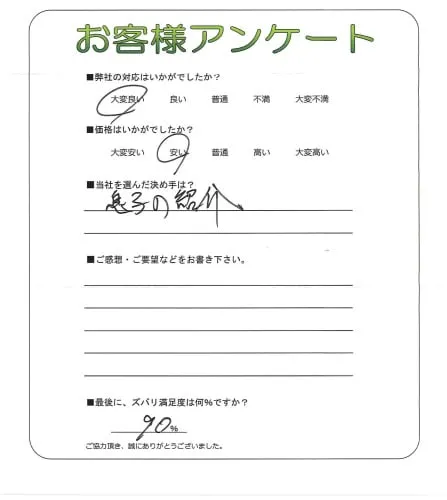 お客様アンケート
■弊社の対応はいかがでしたか?
大変良い 良い 普通 不満 大変不満
■価格はいかがでしたか?
大変安い 安い 普通 高い 大変高い
■当社を選んだ決め手は?
息子の紹介、
■ご感想・ご要望などをお書き下さい。
■最後に、ズバリ満足度は何%ですか?
90%
ご協力頂き、誠にありがとうございました。